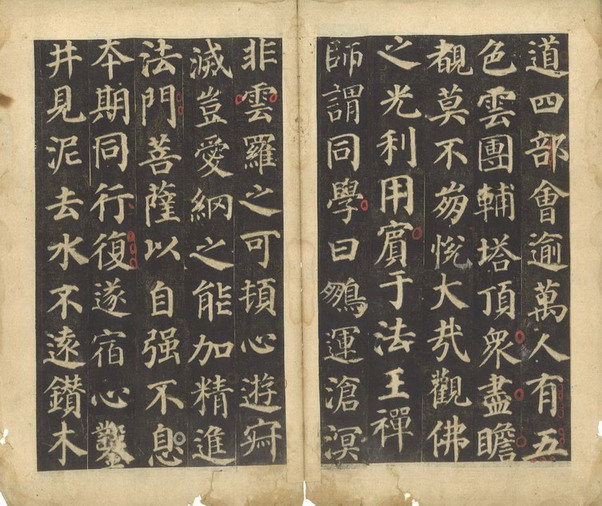 道四部會逾萬人有五
色雲團輔塔頂衆盡瞻
覩莫不崩悅大哉觀佛
之光利用賓于法王禪
師謂同學曰鵬運滄溟
非雲羅之可頓心遊寂
滅豈愛網之能加精進
法門菩薩以自强不息
夲期同行復遂宿心鑿
井見泥去水不遠鑽木